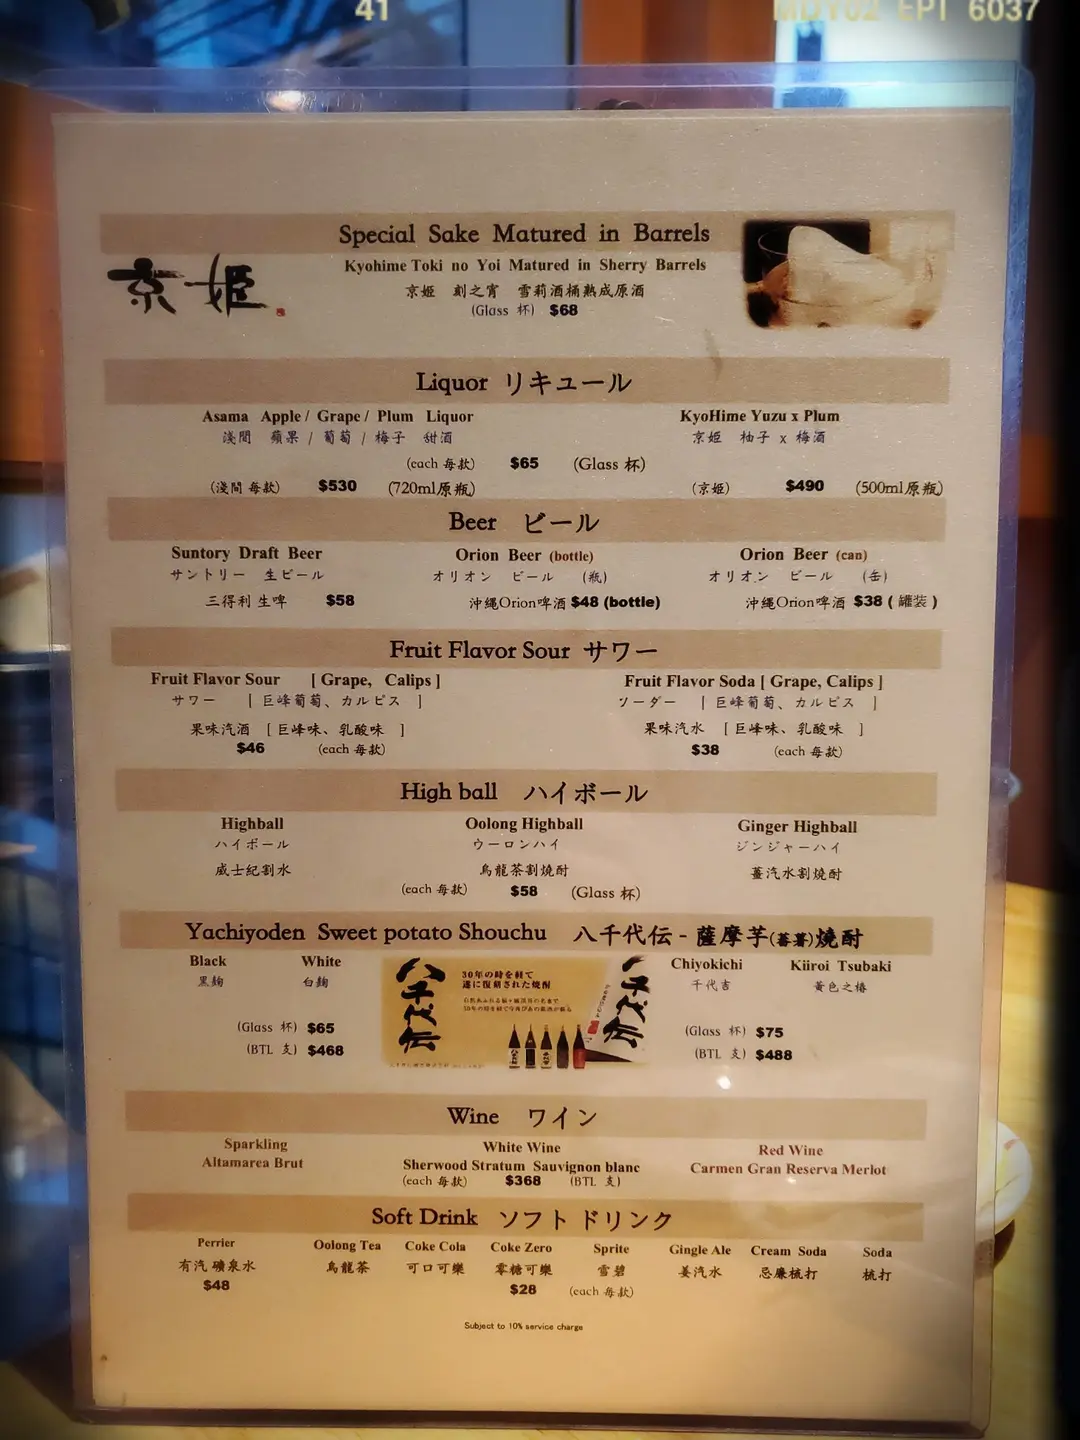 41
MDY02 EPT 6037
Special Sake Matured in Barrels
京姫
Kyohime Toki no Yoi Matured in Sherry Barrels
京姬 刻之宵 雪莉酒桶熟成原酒
(Glass 杯) $68
Liquor リキュール
Asama Apple / Grape / Plum Liquor
KyoHime Yuzu x Plum
淺間 蘋果 / 葡萄 / 梅子 甜酒
京姬 柚子 x 梅酒
(each 每款) $65 (Glass 杯)
(淺間 每款) $530 (720ml原瓶)
(京姬) $490 (500ml原瓶)
Beer ビール
Suntory Draft Beer
Orion Beer (bottle)
Orion Beer (can)
サントリー 生ビール
オリオン ビール (瓶)
オリオン ビール (缶)
三得利 生啤 $58
沖縄Orion啤酒 $48 (bottle)
沖縄Orion啤酒 $38 ( 罐装 )
Fruit Flavor Sour サワー
Fruit Flavor Sour [ Grape, Calips ]
Fruit Flavor Soda [ Grape, Calips ]
サワー [ 巨峰葡萄、カルピス ]
ソーダー [ 巨峰葡萄、カルピス ]
果味汽酒 [ 巨峰味、乳酸味 ]
果味汽水 [ 巨峰味、乳酸味 ]
$46 (each 每款)
$38 (each 每款)
High ball ハイボール
Highball
Oolong Highball
Ginger Highball
ハイボール
ウーロンハイ
ジンジャーハイ
威士紀割水
烏龍茶割燒酎
薑汽水割燒酎
(each 每款) $58 (Glass 杯)
Yachiyoden Sweet potato Shouchu 八千代伝 - 薩摩芋(蕃薯)燒酎
Black
White
Chiyokichi
Kiiroi Tsubaki
黑麹
白麹
千代吉
黃色之椿
八千代伝
30年の時を経て
遂に復刻された焼酎
八千代伝
(Glass 杯) $65
(Glass 杯) $75
(BTL 支) $468
(BTL 支) $488
Wine ワイン
Sparkling
White Wine
Red Wine
Altamarea Brut
Sherwood Stratum Sauvignon blanc
Carmen Gran Reserva Merlot
(each 每款) $368 (BTL 支)
Soft Drink ソフト ドリンク
Perrier
Oolong Tea
Coke Cola
Coke Zero
Sprite
Gingle Ale
Cream Soda
Soda
有汽 礦泉水
烏龍茶
可口可樂
零糖可樂
雪碧
姜汽水
忌廉梳打
梳打
$48
$28 (each 每款)
Subject to 10% service charge